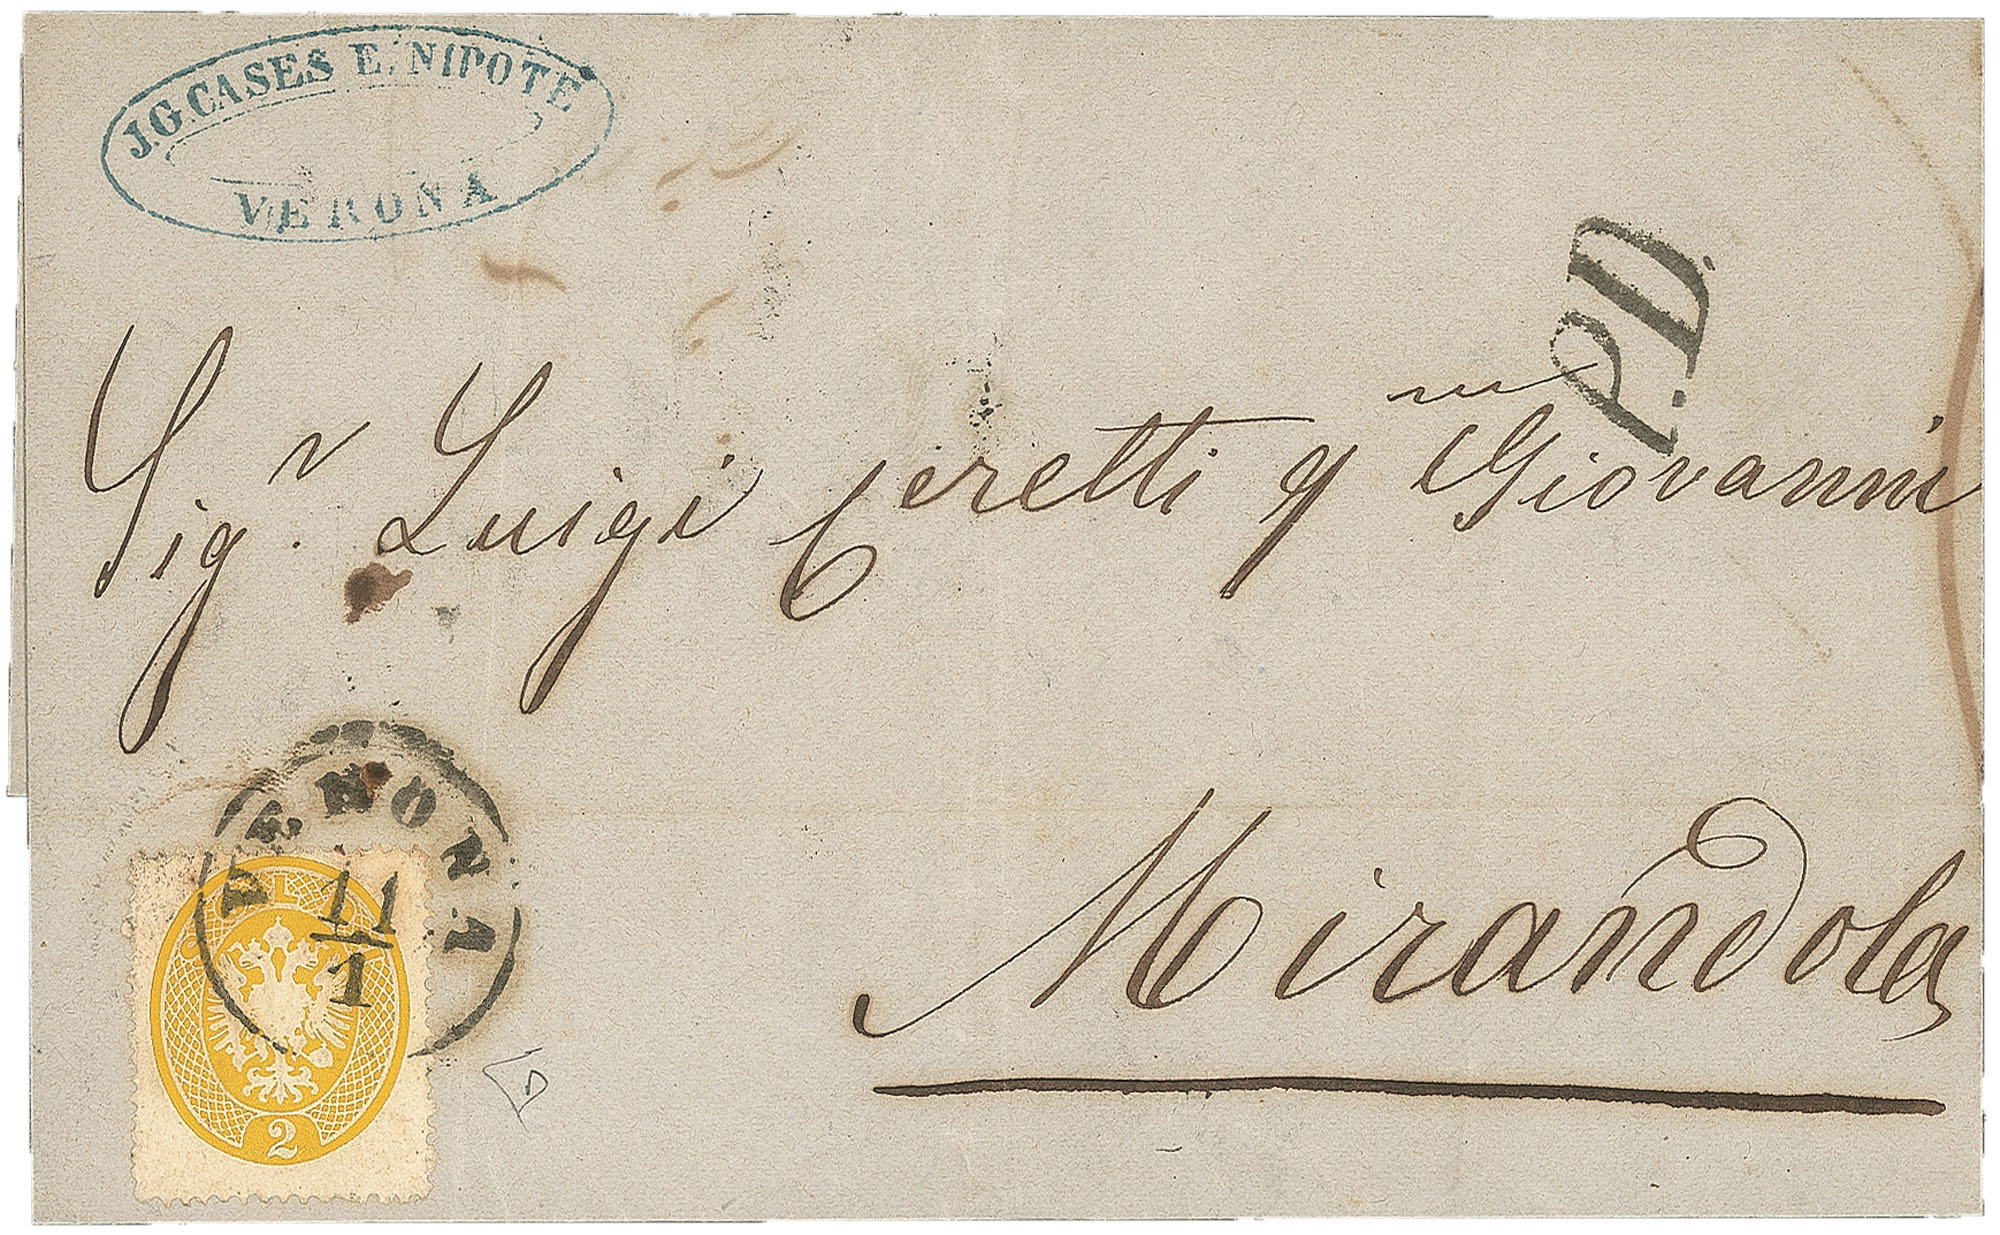 J.G. CASES E. NIPOTE
VERONA
P.D.
Sig.r Luigi Ceretti q.m Giovanni
Mirandola
VERONA
11
1
SOLDI
2